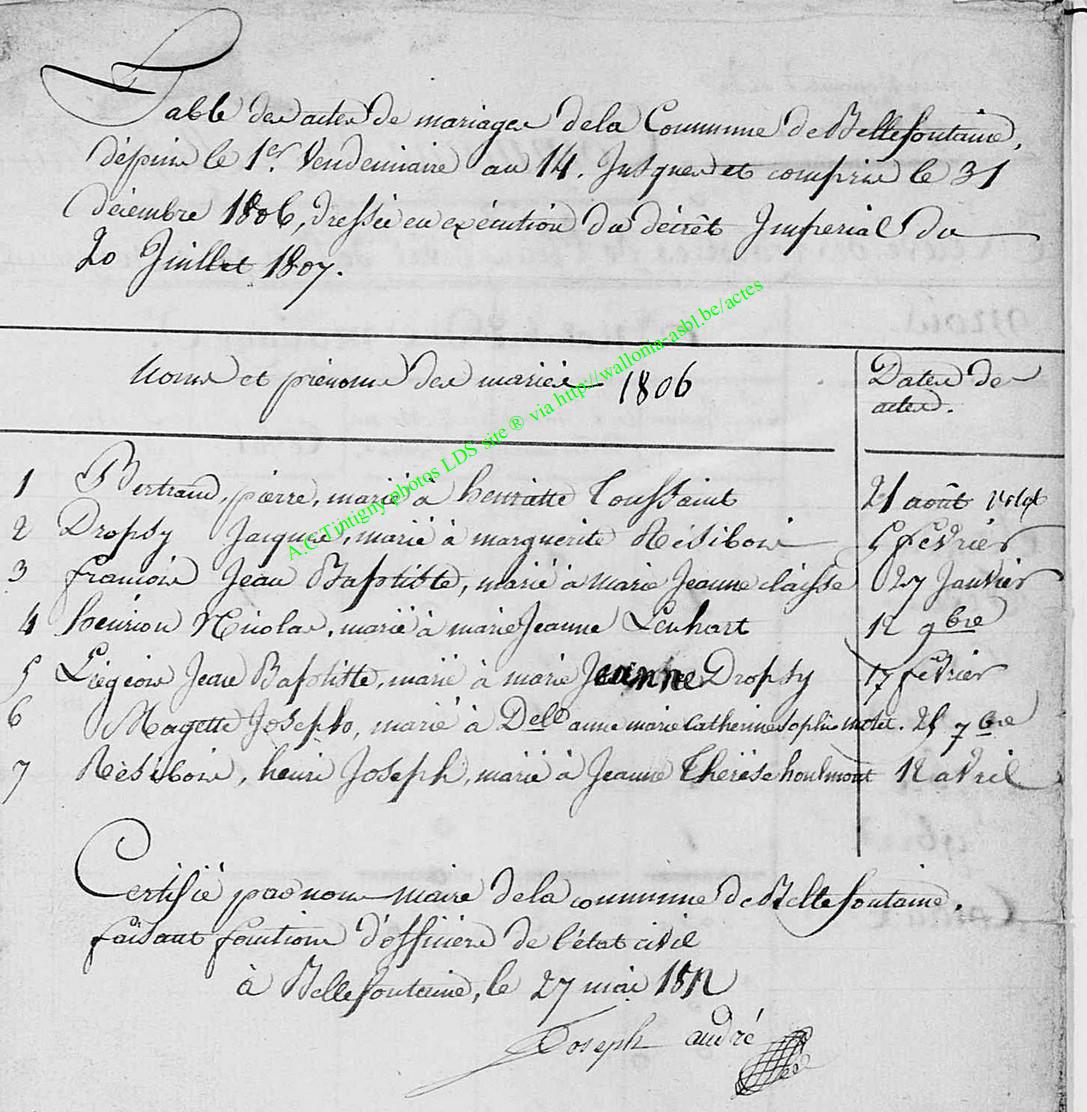 Table des actes de mariages de la Commune de Bellefontaine,
dépuis le 1er Vendemiaire an 14. Jusques et compris le 31
décembre 1806, dressée en exécution du décrêt Imperial du
20 Juillet 1807.
Noms et prénoms des mariés 1806
Dates des
actes.
1 Bertrand, pierre, marié à henriette Toussaint 21 août
2 Dropsy Jacques, marié à marguerite Résibois 5 février
3 francois Jean Baptiste, marié à marie Jeanne claisse 27 Janvier
4 henrion Nicolas, marié à marie Jeanne Lenhart 12 9bre
5 Liégeois Jean Baptiste, marié à marie Jeanne Dropsy 17 février
6 Magette Joseph, marié à Delle anne marie Catherine sophie motet. 25 7bre
7 Résibois, henri Joseph, marié à Jeanne Thérèse houlmont 12 avril
Certifié par nous maire de la commune de Bellefontaine,
faisant fonctions d'officiers de l'état civil
à Bellefontaine, le 27 mai 1812
Joseph andré
A.C.Tintigny photos LDS site ® via http://wallonia-asbl.be/actes